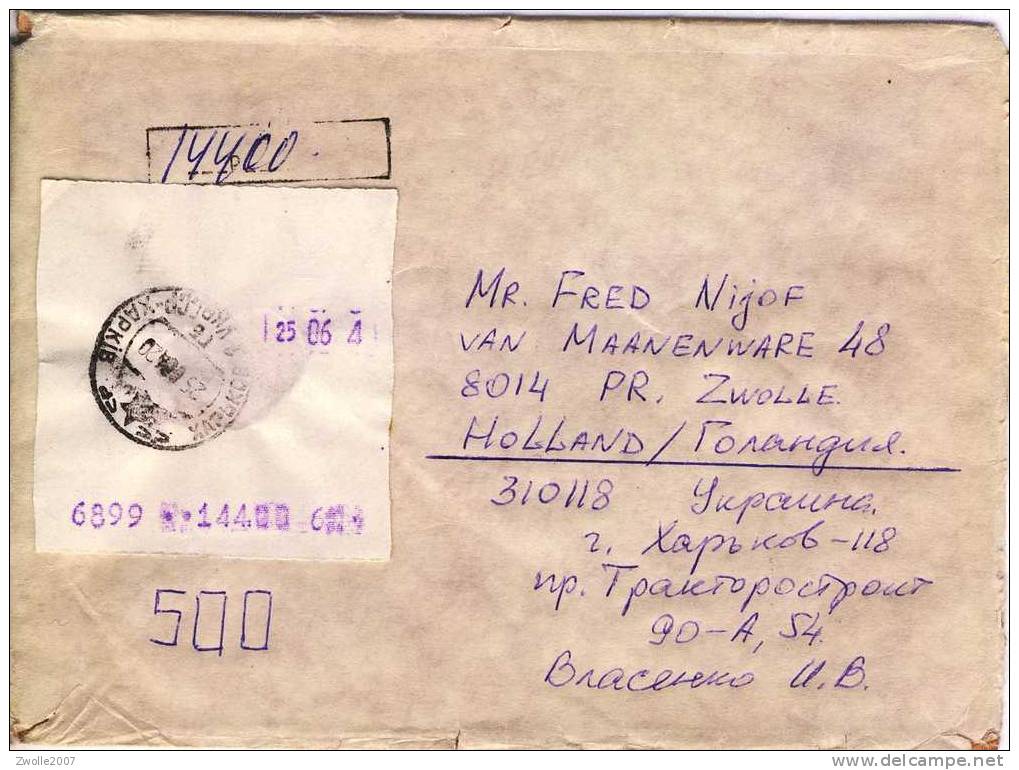 14400.
25 06 4
СССР
ХАРЬКОВ
ХАРКІВ
6899 14400
500
MR. FRED Nijof
VAN MAANENWARE 48
8014 PR. ZWOLLE
HOLLAND/Голандия.
310118 Украина.
г. Харьков-118
пр. Тракторостроит
90-А, 54.
Власенко И.В.
Zwolle2007
www.delcampe.net